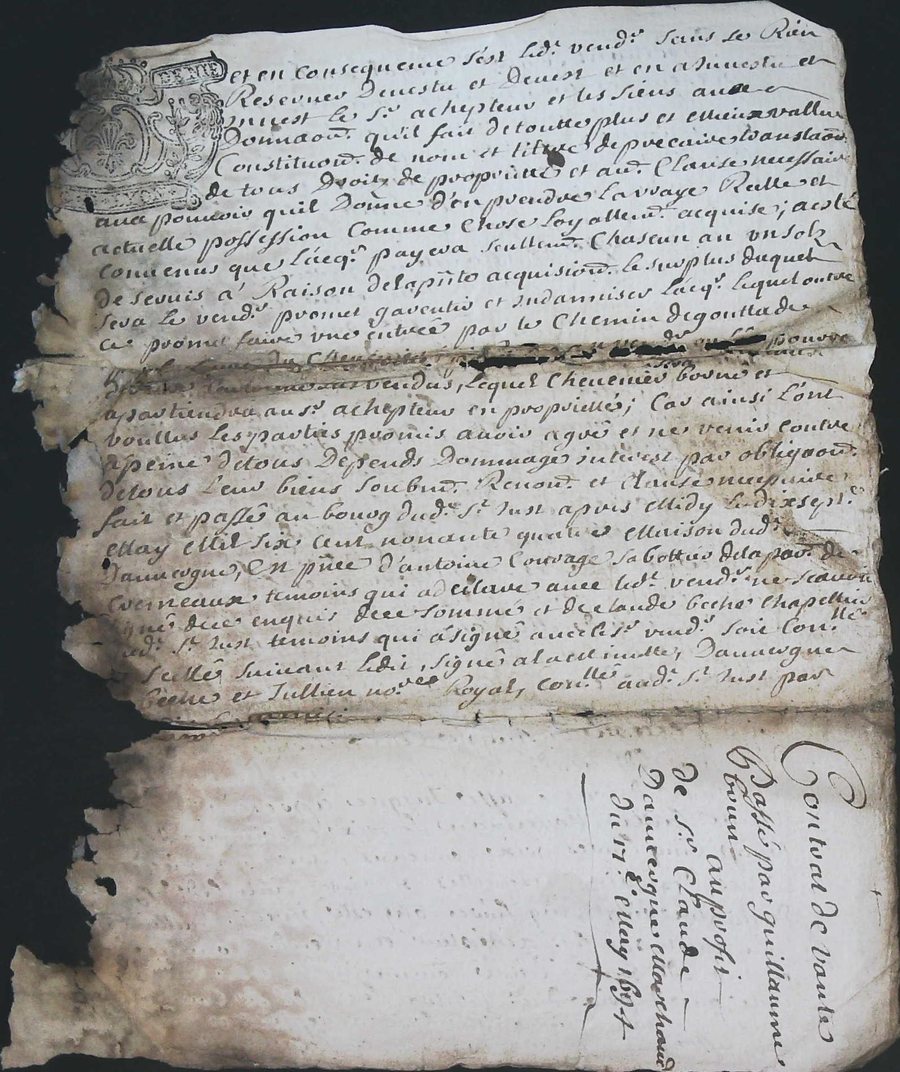 DENIE
et en consequence s'est led.t vend.r sans se Rien
Reserver Devestu et Devest et en a Investu et
Invest le S.r achepteur et les siens avec
Donnaon. qu'il fait de toutte plus et mieux vallue
Constituon. de nom et tiltre de precaire translaon.
de tous Droits de proprietté et au.t Clause necessaire
aux pouvoir quil Donne d'en prendre La vraye Relle et
actuelle possession Comme Chose Loyallem.t acquise; a esté
Convenus que L'acq.r payera seullem.t Chascun an un solz
de servis a' Raison de la p.nte acquision. le surplus duquel
sera le vend.r promet garentir et indamniser Lacq.r lequel outre
ce promet faire une entrée par le Chemin de goutta de
vendus, Lequel Chenemier borné et
apartiendra au S.r achepteur en proprietté; Car ainsi L'ont
voullus Les parties promis avoir agré et ne venir contre
a peine de tous Depends Dommage interest par obligaon.
de tous Leur biens soubm. Renon. et Clause necessaire
fait et passé au bourg dud. S.t Just apres Midy Le dix sept.e
May Mil six cent nonante quatre Maison dud.
Dauvergne, En p.nce d'antoine Couvage sabottier de la par. de
Cremeaux temoins qui a declaré avec led.t vend.r ne scavoir
signé de ce enquis dece sommé et de claude beche Chapellier
dud. S.t Just temoins qui a signé avec le S.r vend.r soit Con.llé
scellé suivant L'edit, signé a la Minutte, Dauvergne
beche et Jullien no.re Royal, con.llé aud. S.t Just par
Contrat de vante
Passé par guillaume
au profit
de S.r Claude
Dauvergne Marchand
du 17.E May 1694